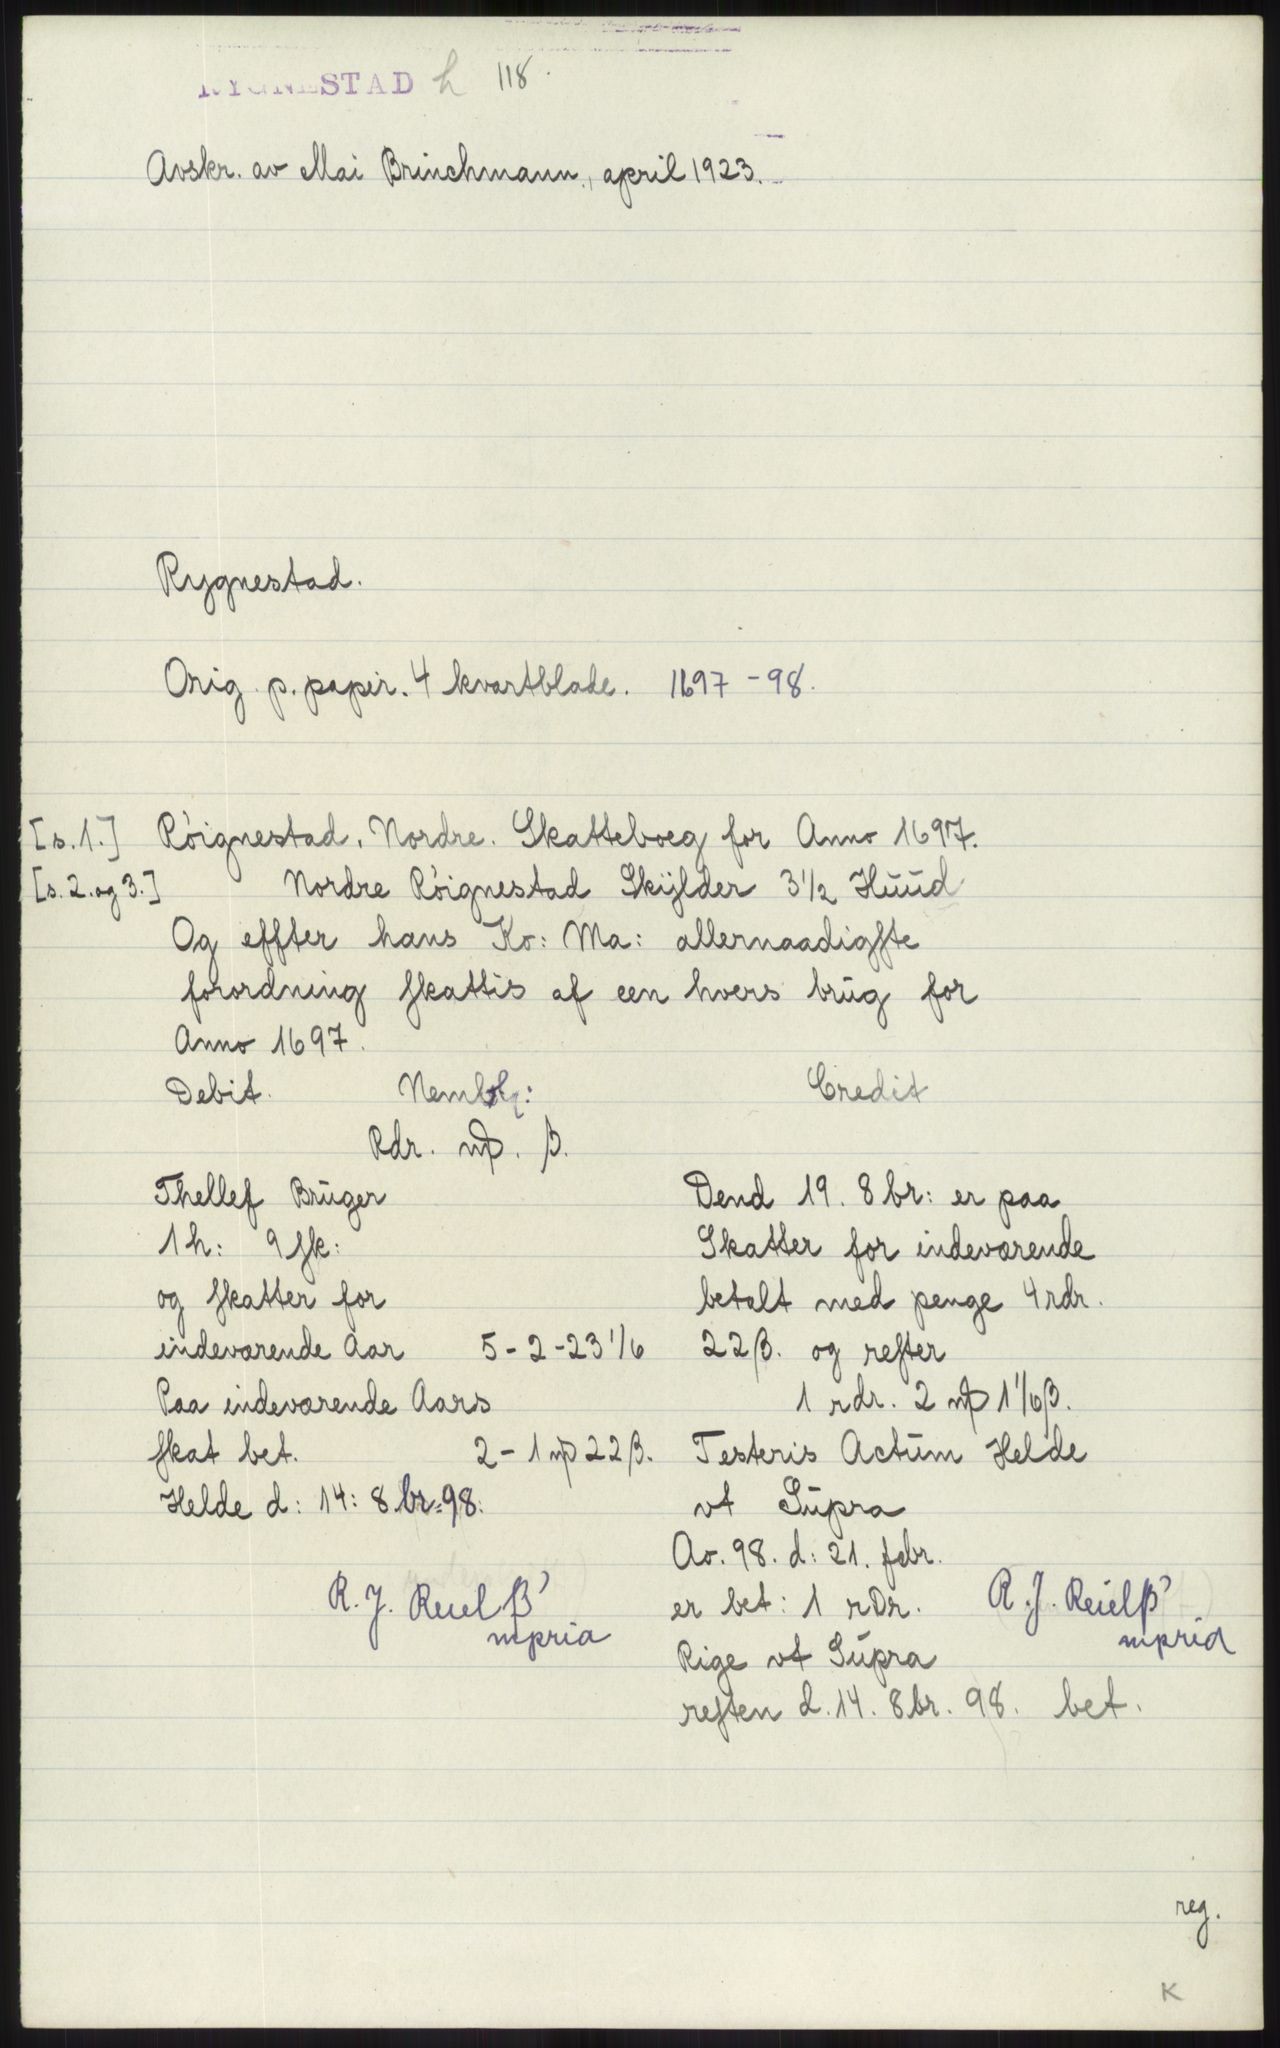 RYGNESTAD h 118.
Avskr. av Mai Brinchmann, april 1923.
Rygnestad.
Orig. p. papir. 4 kvartblade. 1697-98.
[s. 1.] Röignestad, Nordre. Skatteboeg for Anno 1697.
[s. 2. og 3.] Nordre Röignestad Skÿlder 3 1/2 Hūūd
Og effter hans Ko: Ma: allernaadigſte
forordning ſkattis af een hvers brūg for
Anno 1697.
Debit.
Credit
Rdr. mþ. β.
Thellef Brūger
1 h: 9 ſk:
og ſkatter for
indeværende Aar 5-2-23 1/6
Paa indeværende Aars
ſkat bet. 2-1 mþ 22 β.
Helde d: 14: 8 br: 98:
R. J. Reuelβ'
mpria
Dend 19. 8 br: er paa
Skatter for indeværende
betalt med penge 4 rdr.
22 β. og reſter
1 rdr. 2 mþ 1 1/6 β.
Testeris Actūm Helde
vt Sūpra
Ao. 98. d: 21. febr.
er bet: 1 rDr.
Rige vt Sūpra
reſten d. 14. 8 br. 98. bet.
R. J. Reuelβ'
mpria
reg.
K